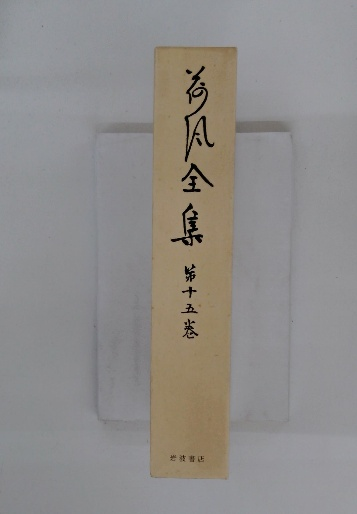 荷風全集 第十五巻
岩波書店